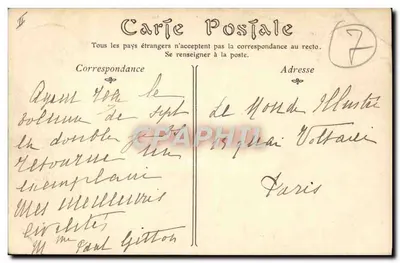 II
Carte Postale
7
Tous les pays étrangers n'acceptent pas la correspondance au recto.
Se renseigner à la poste.
Correspondance
Adresse
Ayant reçu le
volume de sept
en double je
retourne
exemplaire
Mes meilleures
civilités
Mme Paul Gitton
Le Monde Illustré
13 quai Voltaire
Paris
CPAPHIL